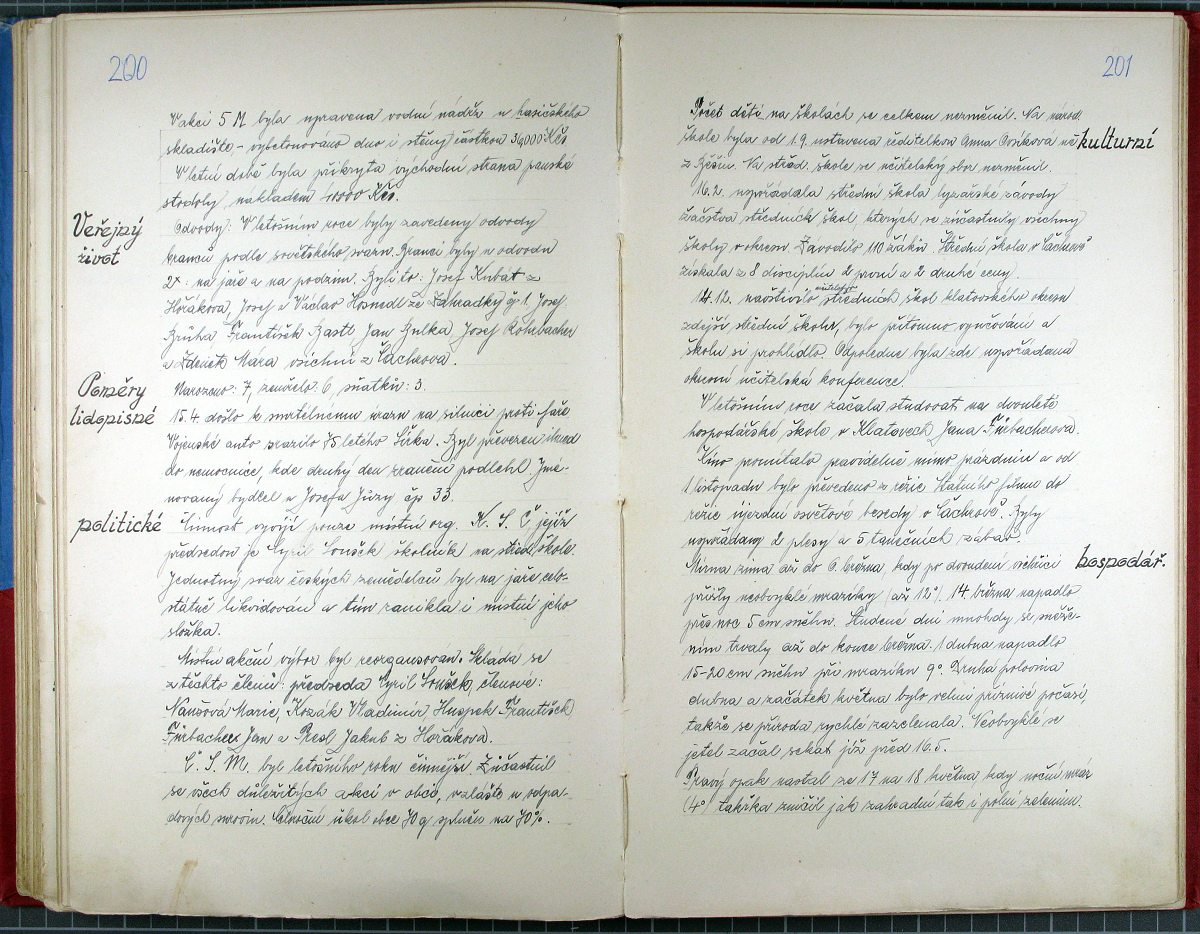 200
V akci 5 M byla upravena vodní nádrž u hasičského
skladiště, - vybetonováno dno i stěny částkou 36000 Kčs
V letní době byla přikryta východní strana panské
stodoly nákladem 40000 Kčs.
Veřejný
život
Odvody: V letošním roce byly zavedeny odvody
branců podle sovětského vzoru. Branci byli u odvodu
2x: na jaře a na podzim. Byli to: Josef Kubat z
Hořákova, Josef a Václav Hosnedl ze Zahrádky čp 1. Josef
Brůha František Bastl Jan Bulka Josef Rohrbacher
a Zdeněk Mara všichni z Čachrova.
Poměry
lidopisné
Narozeno: 7, zemřelo: 6, sňatků: 3.
15.4. došlo k smrtelnému úrazu na silnici proti faře
Vojenské auto srazilo 75 letého Šiška. Byl převezen ihned
do nemocnice, kde druhý den zranění podlehl. Jme-
novaný bydlel u Josefa Jůzy čp 33.
politické
Činnost vyvíjí pouze místní org. K. S. Č, jejíž
předsedou je Cyril Loušek školník na střed. škole.
Jednotný svaz českých zemědělců byl na jaře celo-
státně likvidován a tím zanikla i místní jeho
složka.
Místní akční výbor byl reorganisován. Skládá se
z těchto členů: předseda Cyril Loušek, členové:
Naušová Marie, Kozák Vladimír, Huspek František
Fürbacher Jan a Presl Jakub z Hořákova.
Č. S. M. byl letošního roku činnější. Zúčastnil
se všech důležitých akcí v obci, zvláště u odpa-
dových surovin. Celoroční úkol obce 70 q splněn na 70%.
201
kulturní
Počet dětí na školách se celkem nezměnil. Na národ.
škole byla od 1.9. ustavena ředitelkou Anna Osiková uč
z Běšin. Na střed. škole se učitelský sbor nezměnil.
16.2. uspořádala střední škola lyžařské závody
žactva středních škol, kterých se zúčastnily všechny
školy v okresu Závodilo 110 žáků. Střední škola v Čachrově
získala z 8 disciplin 2 první a 2 druhé ceny.
14.12. navštívilo učitelstvo středních škol klatovského okresu
zdejší střední školu, bylo přítomno vyučování a
školu si prohlédlo. Odpoledne byla zde uspořádána
okresní učitelská konference.
V letošním roce začala studovat na dvouleté
hospodářské škole v Klatovech Jana Fürbacherová.
Kino promítalo pravidelně mimo prázdnin a od
1 listopadu bylo převedeno z režie Státního filmu do
režie újezdní osvětové besedy v Čachrově. Byly
uspořádány 2 plesy a 5 tanečních zábav.
hospodář.
Mírná zima až do 6. března, kdy po dvoudení vichřici
přišly neobvyklé mrazíky (až 12°). 14. března napadlo
přes noc 5 cm sněhu. Studené dni mnohdy se sněže-
ním trvaly až do konce března. 1 dubna napadlo
15-20 cm sněhu při mrazíku 9°. Druhá polovina
dubna a začátek května bylo velmi příznivé počasí,
takže se příroda rychle zazelenala. Neobvykle se
jetel začal sekat již před 16.5.
Pravý opak nastal ze 17 na 18 května, kdy noční mráz
(4°) takřka zničil jak zahradní tak i polní zeleninu.